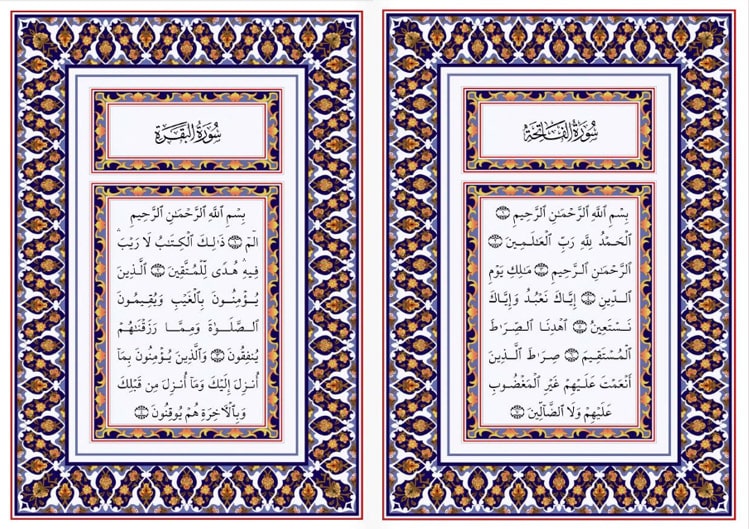 سُورَةُ ٱلْفَاتِحَةِ
بِسْمِ ٱللَّهِ ٱلرَّحْمَٰنِ ٱلرَّحِيمِ ۝١
ٱلْحَمْدُ لِلَّهِ رَبِّ ٱلْعَٰلَمِينَ ۝٢
ٱلرَّحْمَٰنِ ٱلرَّحِيمِ ۝٣ مَٰلِكِ يَوْمِ
ٱلدِّينِ ۝٤ إِيَّاكَ نَعْبُدُ وَإِيَّاكَ
نَسْتَعِينُ ۝٥ ٱهْدِنَا ٱلصِّرَٰطَ
ٱلْمُسْتَقِيمَ ۝٦ صِرَٰطَ ٱلَّذِينَ
أَنْعَمْتَ عَلَيْهِمْ غَيْرِ ٱلْمَغْضُوبِ
عَلَيْهِمْ وَلَا ٱلضَّآلِّينَ ۝٧
سُورَةُ البَقَرَةِ
بِسْمِ ٱللَّهِ ٱلرَّحْمَٰنِ ٱلرَّحِيمِ
الٓمٓ ۝١ ذَٰلِكَ ٱلْكِتَٰبُ لَا رَيْبَ ۛ
فِيهِ ۛ هُدًى لِّلْمُتَّقِينَ ۝٢ ٱلَّذِينَ
يُؤْمِنُونَ بِٱلْغَيْبِ وَيُقِيمُونَ
ٱلصَّلَوٰةَ وَمِمَّا رَزَقْنَٰهُمْ
يُنفِقُونَ ۝٣ وَٱلَّذِينَ يُؤْمِنُونَ بِمَآ
أُنزِلَ إِلَيْكَ وَمَآ أُنزِلَ مِن قَبْلِكَ
وَبِٱلْءَاخِرَةِ هُمْ يُوقِنُونَ ۝٤